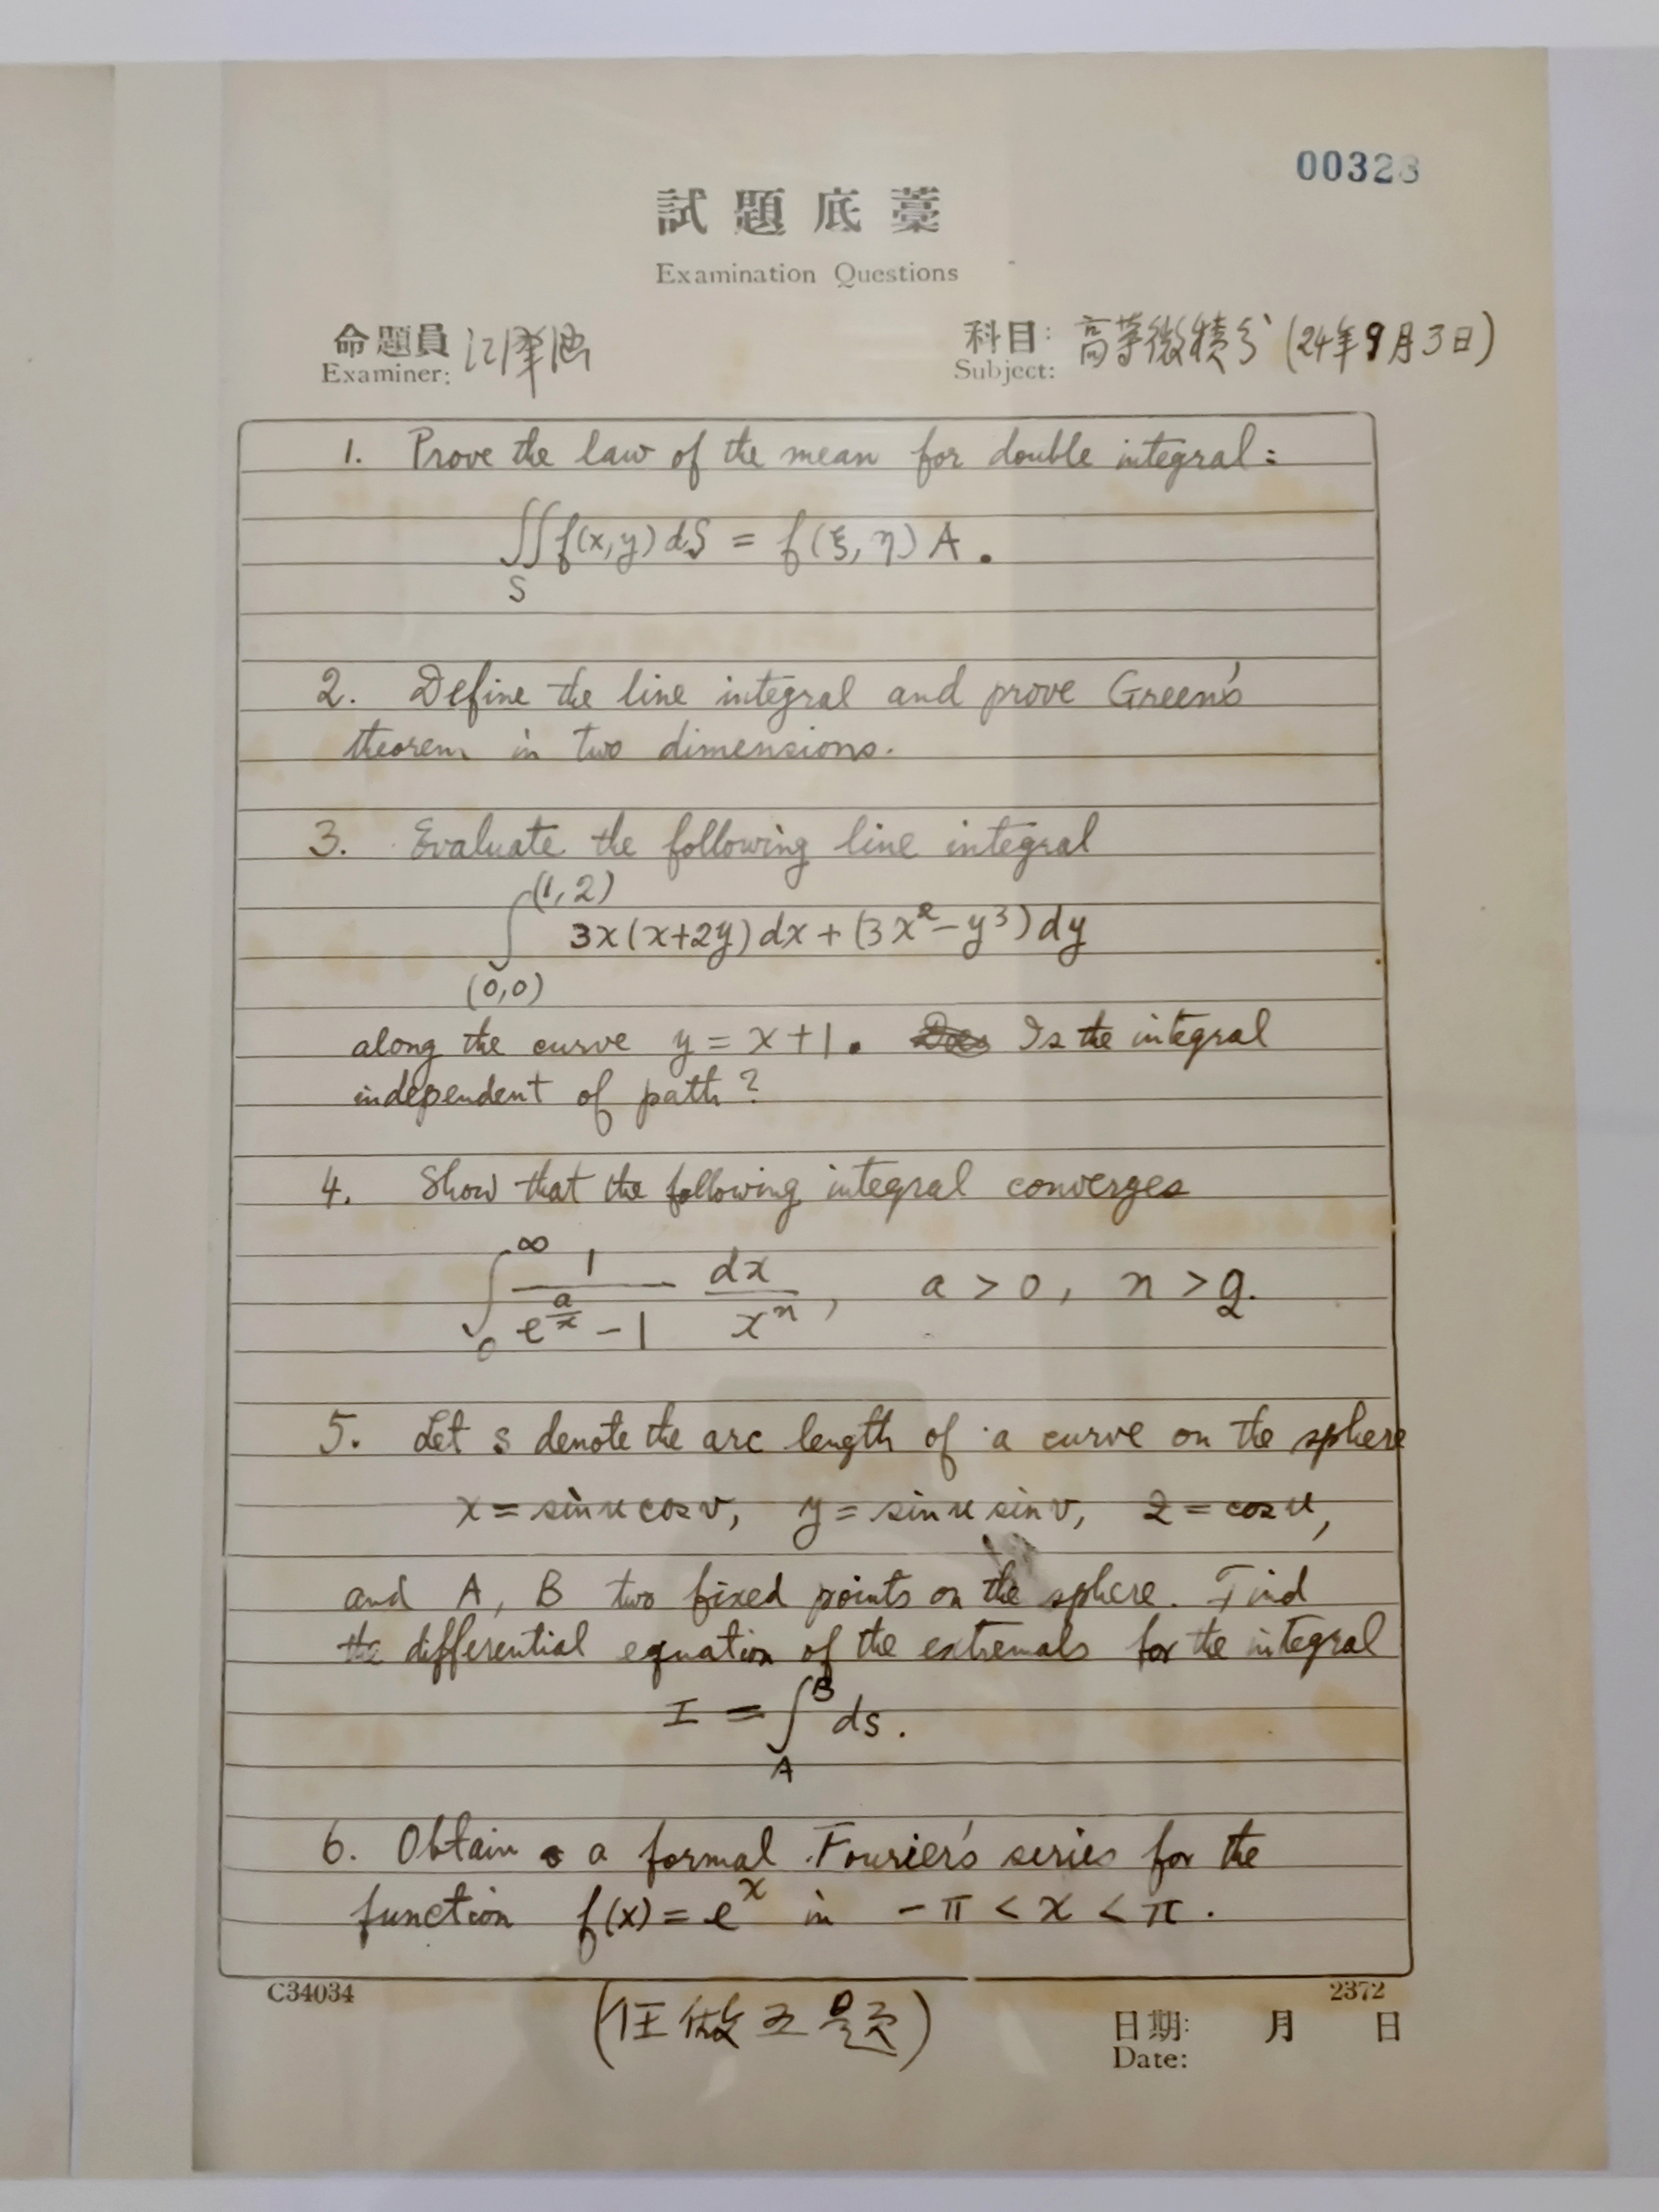 00328
試題底藁
Examination Questions
命題員 江澤涵
Examiner:
科目: 高等微積分 (24年9月3日)
Subject:
1. Prove the law of the mean for double integral:
∬f(x,y) dS = f(ξ, η) A.
S
2. Define the line integral and prove Green's
theorem in two dimensions.
3. Evaluate the following line integral
(1,2)
∫ 3x(x+2y) dx + (3x²-y³) dy
(0,0)
along the curve y = x+1. Is the integral
independent of path?
4. Show that the following integral converges
∫₀^∞ 1/(e^(a/x) - 1) dx/xⁿ, a > 0, n > 2.
5. Let s denote the arc length of a curve on the sphere
x = sin u cos v, y = sin u sin v, z = cos u,
and A, B two fixed points on the sphere. Find
the differential equation of the extremals for the integral
I = ∫_A^B ds.
6. Obtain a formal Fourier's series for the
function f(x) = eˣ in -π < x < π.
C34034
2372
(任做五题)
日期: 月 日
Date: